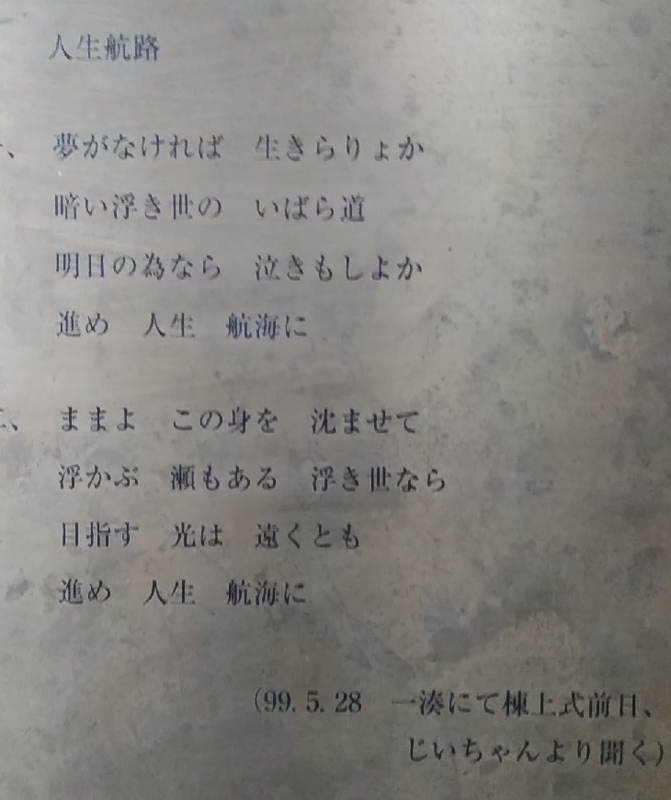 人生航路
一、 夢がなければ 生きらりょか
暗い浮き世の いばら道
明日の為なら 泣きもしよか
進め 人生 航海に
二、 ままよ この身を 沈ませて
浮かぶ 瀬もある 浮き世なら
目指す 光は 遠くとも
進め 人生 航海に
(99.5.28 一湊にて棟上式前日、
じいちゃんより聞く)